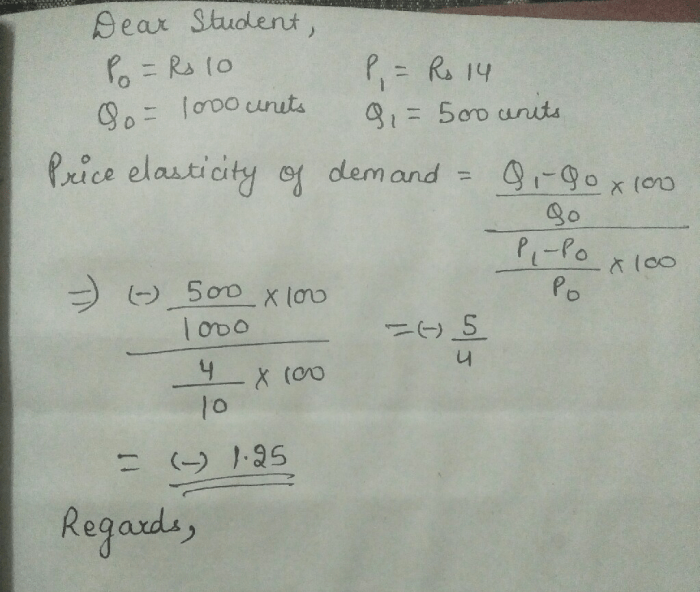 Dear Student,
P₀ = Rs 10 P₁ = Rs 14
Q₀ = 1000 units Q₁ = 500 units
Price elasticity of demand = Q₁-Q₀ x 100
Q₀
P₁-P₀ x 100
P₀
⇒ (-) 500 x 100
1000
4 x 100
10
= (-) 5
4
= (-) 1.25
Regards,